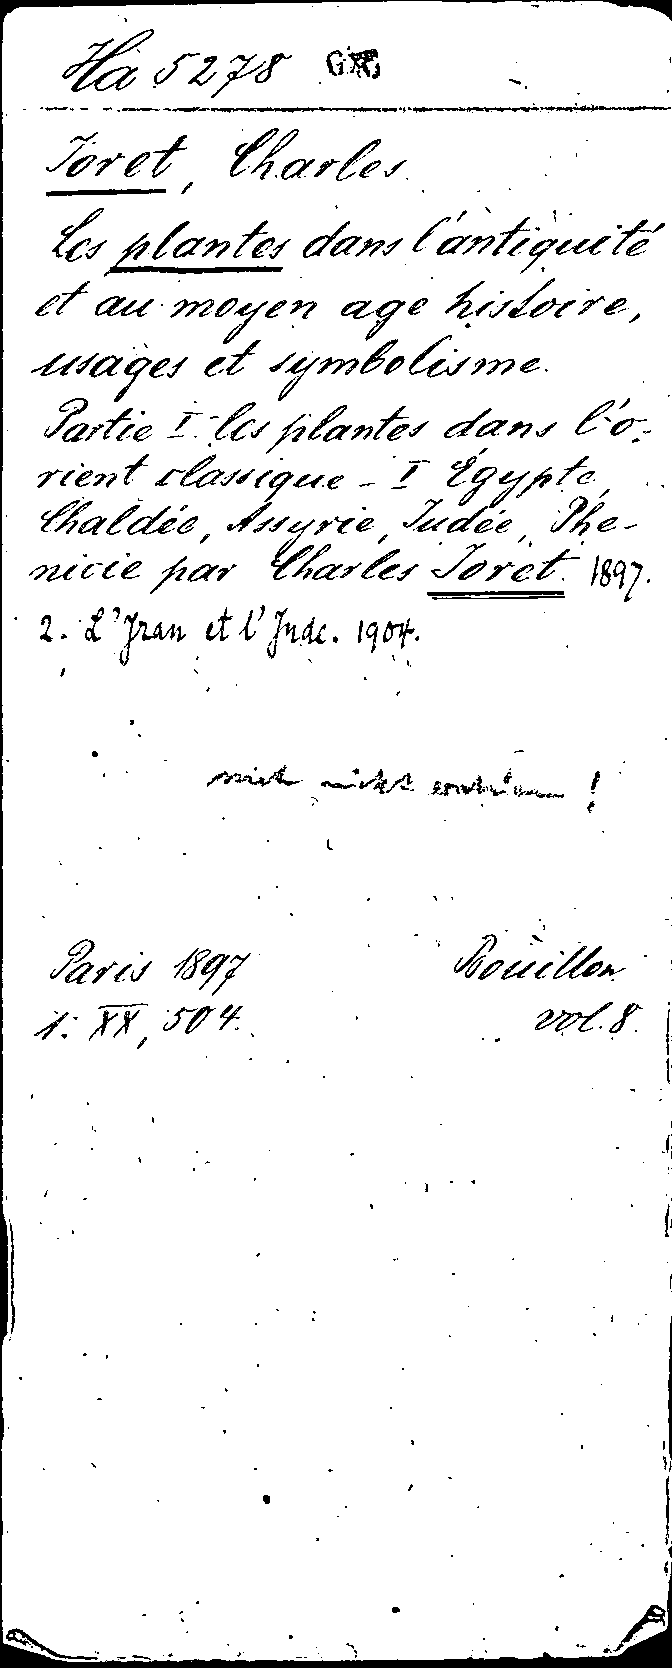 Ha 5278
Joret, Charles.
Les plantes dans l'antiquité
et au moyen age histoire,
usages et symbolisme.
Partie I - les plantes dans l'o-
rient classique - I Égypte,
Chaldée, Assyrie, Judée, Phé-
nicie par Charles Joret. 1897.
2. L'Jran et l'Inde. 1904.
nicht !
Paris 1897 Bouillon
1. XX, 504. vol. 8.